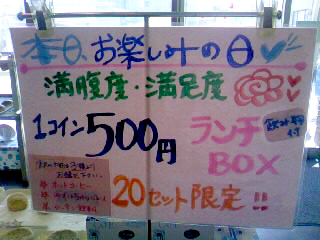 本日、お楽しみの日
満腹度・満足度
1コイン500円
ランチ
BOX
ホットコーヒー
20セット限定!!